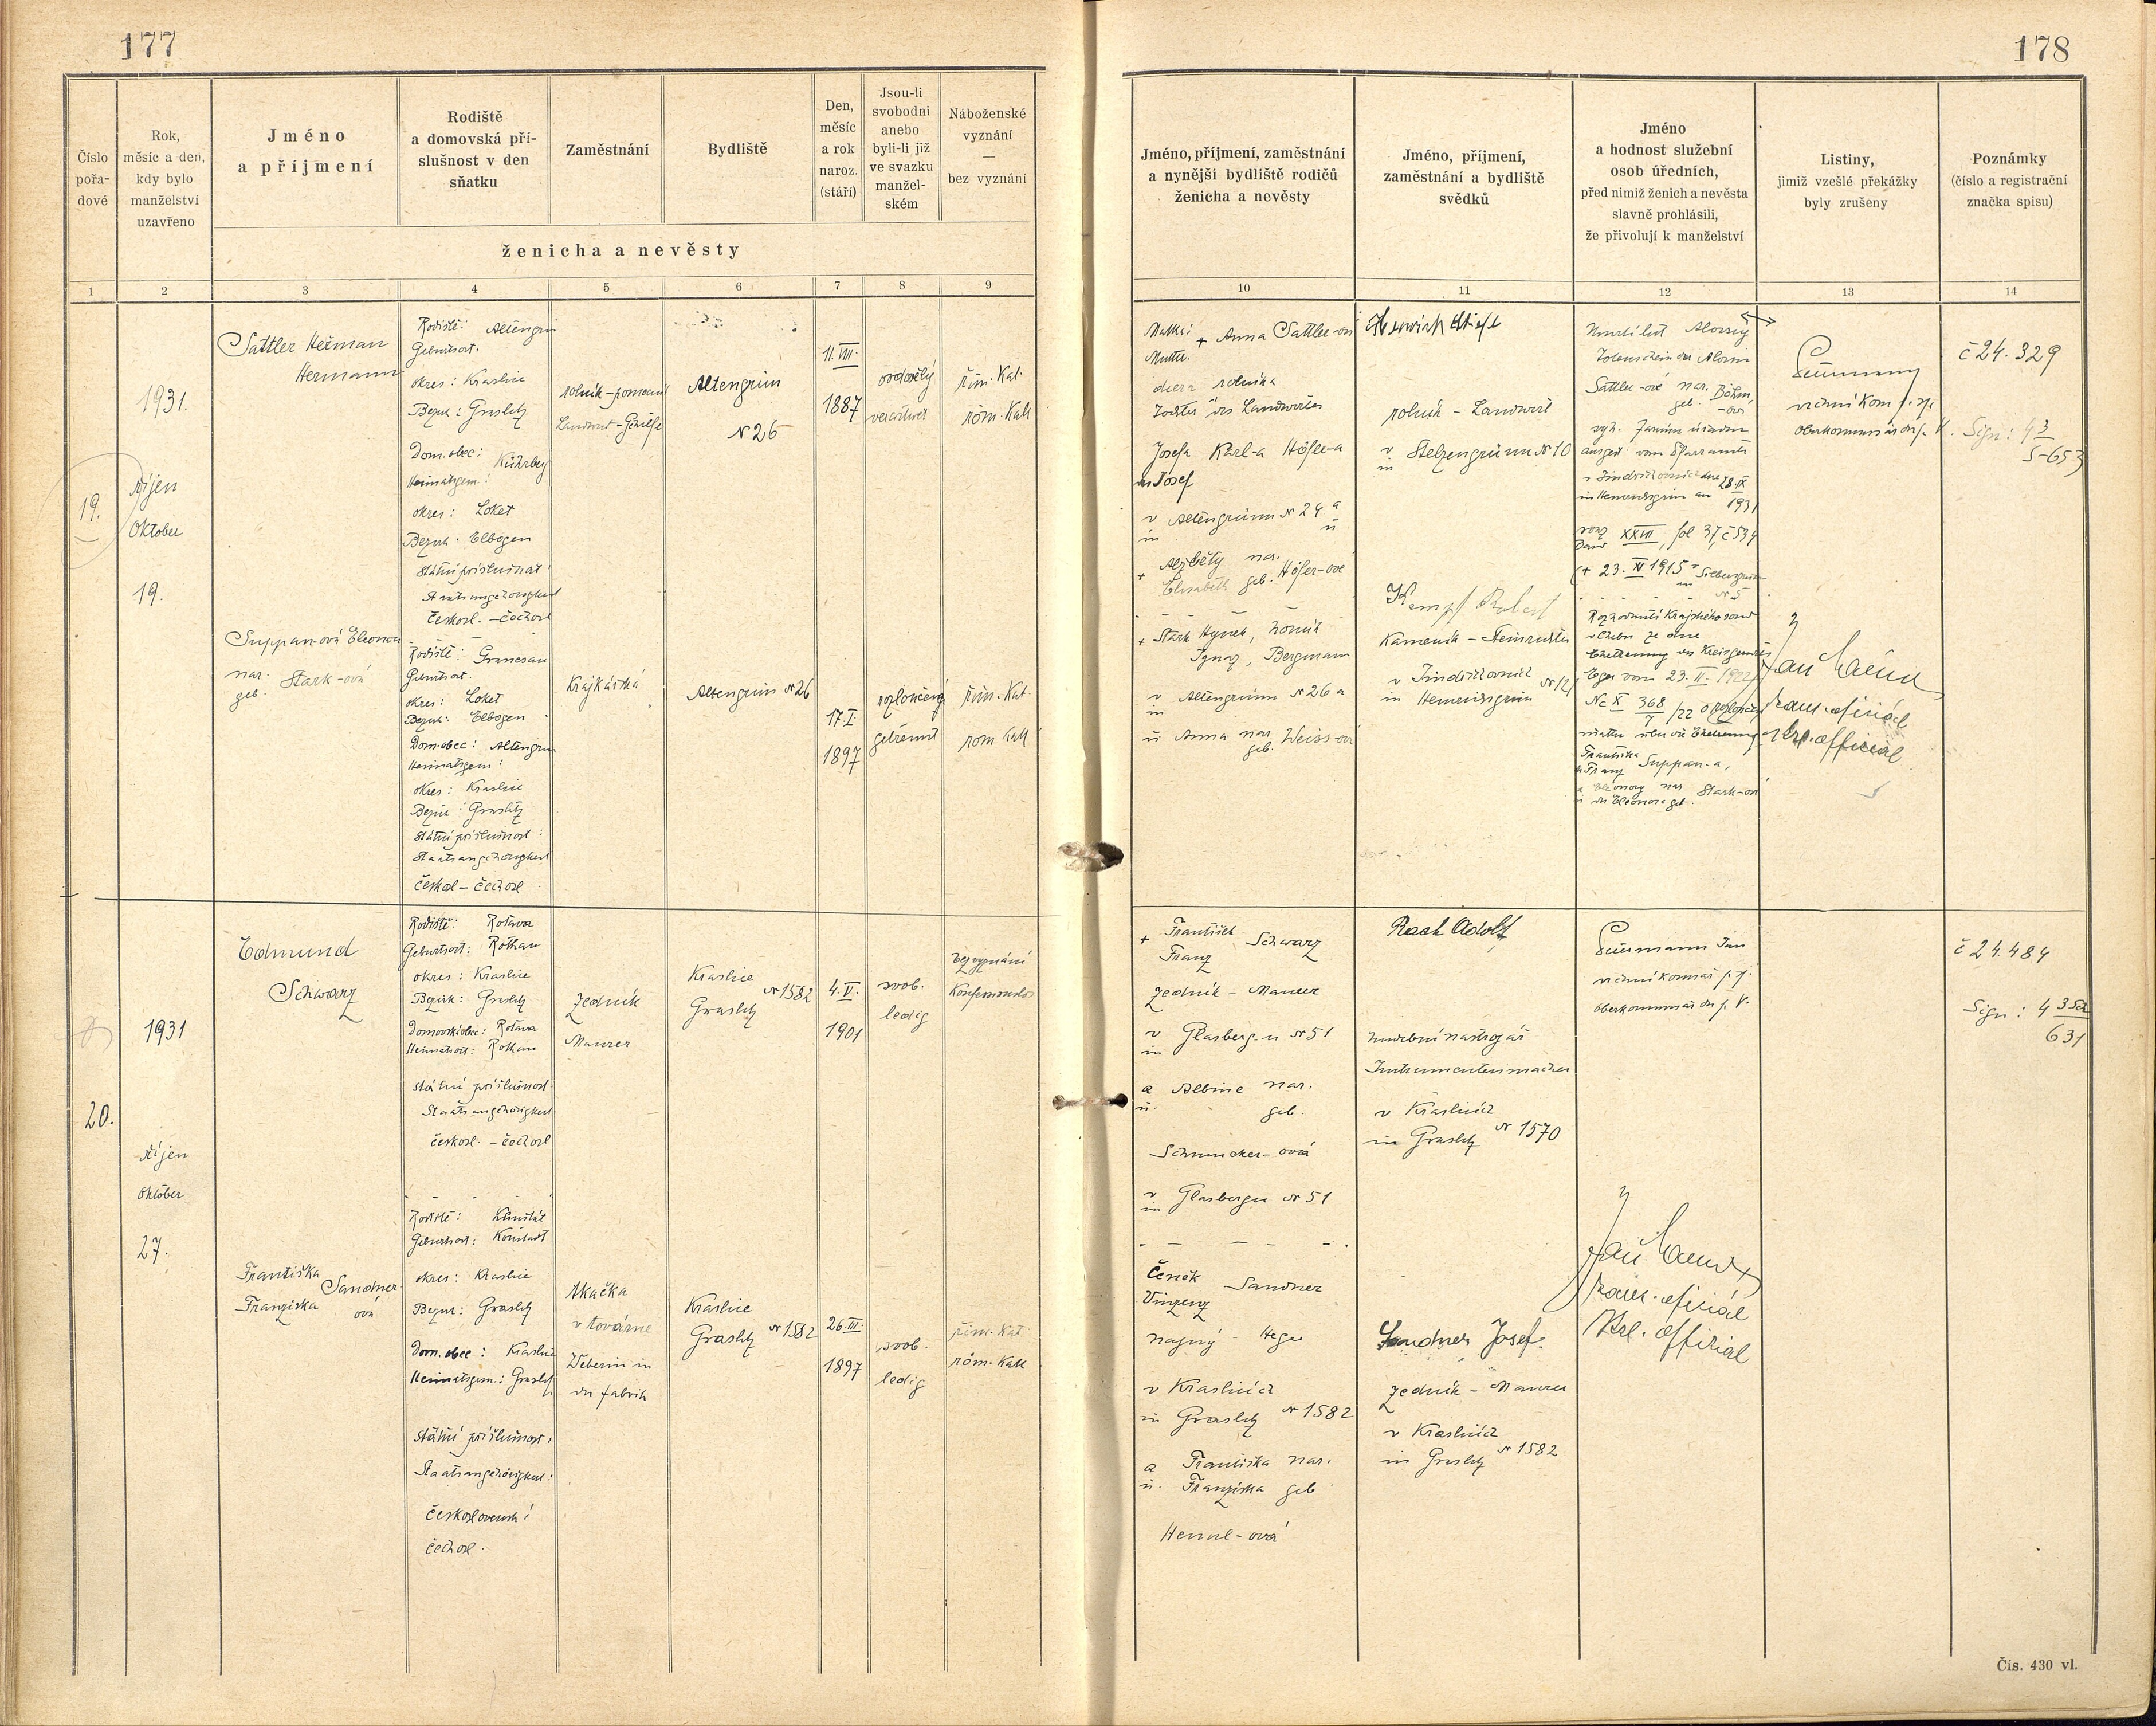 177
Číslo
pořa-
dové
Rok,
měsíc a den,
kdy bylo
manželství
uzavřeno
Jméno
a příjmení
Rodiště
a domovská pří-
slušnost v den
sňatku
Zaměstnání
Bydliště
Den,
měsíc
a rok
naroz.
(stáří)
Jsou-li
svobodni
anebo
byli-li již
ve svazku
manžel-
ském
Náboženské
vyznání
—
bez vyznání
ženicha a nevěsty
1 2 3 4 5 6 7 8 9
19.
1931.
Říjen
Oktober
19.
Sattler Heřman
Hermann
Rodiště: Altengrün
Geburtsort.
okres: Kraslice
Bezirk: Graslitz
Dom. obec:
Heimatsgem.:
okres: Loket
Bezirk. Elbogen
Státní příslušnost
Staatsangehörigkeit
českosl. – čechosl
rolník – pomocník
Landwirt – Gehilfe
Altengrün
N 26
11. VIII.
1887
ovdovělý
verwitwet
řím. Kat.
röm. Kath
Suppan-ová Eleonora
nar.
geb. Stark-ová
Rodiště:
Geburtsort.
okres: Loket
Bezirk: Elbogen
Dom. obec: Altengrün
Heimatsgem:
okres: Kraslice
Bezirk: Graslitz
Státní příslušnost:
Staatsangehörigkeit
českosl – čechosl
Krajkářka
Altengrün N 26
17. I.
1897
rozloučená
getrennt
řím. Kat.
röm. Kath
20.
1931
Říjen
Oktober
27.
Edmund
Schwarz
Rodiště: Rotava
Geburtsort: Rothau
okres: Kraslice
Bezirk: Graslitz
Domovská obec: Rotava
Heimatsort: Rothau
státní příslušnost
Staatsangehörigkeit
českosl. – čechosl
Zedník
Maurer
Kraslice
Graslitz N 1582
4. V.
1901
svob.
ledig
bez vyznání
Konfessionslos
Františka
Franziska Sandner
ová
Rodiště:
Geburtsort: Konstadt
okres: Kraslice
Bezirk: Graslitz
Dom. obec: Kraslice
Heimatsgem.: Graslitz
státní příslušnost:
Staatsangehörigkeit:
československá
čechosl.
tkačka
v továrně
Weberin in
der Fabrik
Kraslice
Graslitz N 1582
26. III.
1897
svob.
ledig
řím. Kat.
röm. Kath
178
Jméno, příjmení, zaměstnání
a nynější bydliště rodičů
ženicha a nevěsty
Jméno, příjmení,
zaměstnání a bydliště
svědků
Jméno
a hodnost služební
osob úředních,
před nimiž ženich a nevěsta
slavně prohlásili,
že přivolují k manželství
Listiny,
jimiž vzešlé překážky
byly zrušeny
Poznámky
(číslo a registrační
značka spisu)
10 11 12 13 14
Matka:
Mutter. + Anna Sattler-ová
dcera rolníka
Tochter des Landwirtes
Josefa Karl-a Höfer-a
des Josef
v
in Altengrünu N 24 a
u
+ Alžběty nar.
Elisabeth geb. Höfer-ové
+ Stark Hynek, horník
Ignaz, Bergmann
v
in Altengrünu N 26 a
u. Anna nar.
geb. Weiss-ová
rolník – Landwirt
v
in Stelzengrünu N 10
Kempf Robert
Kameník – Steinrichter
v Jindřichovicích
in Heinrichsgrün N 12
Úmrtní list Aloisie
Totenschein der Aloisia
Sattler-ové nar.
geb. Böhm
-ové
vyh. farním úřadem
ausgest. vom Pfarramte
v Jindřichovicích dne
in Heinrichsgrün am 28. IX
1931
svaz.
Band XXVII, fol 37, č 539
(+ 23. XI 1915 v
in Silbergrün
N 5
Rozhodnutí Krajského soudu
v Chebu ze dne
Ehetrennung des Kreisgerichtes
Eger vom 23. II. 1922
Nc X 368/7 /22 o rozloučení
Františka
des Franz Suppan-a,
a Eleonory nar. Stark-ové
u. der Eleonora geb.
vrchní kom. p. sp.
Oberkommissär der p. V.
kanc. oficiál
Kzl. official
č 24.329
Sign: 4 3
5-653
+ František
Franz Schwarz
zedník – Maurer
v
in Glasberg-u N 51
a
u. Albine nar.
geb.
Schmucker-ová
v
in Glasbergu N 51
Čeněk
Vinzenz Sandner
hajný – Heger
v Kraslicích
in Graslitz N 1582
a
u. Františka nar.
Franziska geb
Hennl-ová
hudební nástrojář
Instrumentenmacher
v Kraslicích
in Graslitz N 1570
Sandner Josef.
zedník – Maurer
v Kraslicích
in Graslitz N 1582
vrchní komisař p. sp.
Oberkommissär der p. V.
kanc. oficiál
Kzl. official
č 24.484
Sign: 4 35a
631
Čís. 430 vl.